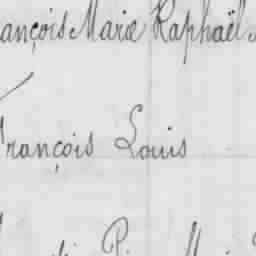 ançois Marie Raphaël
François Louis